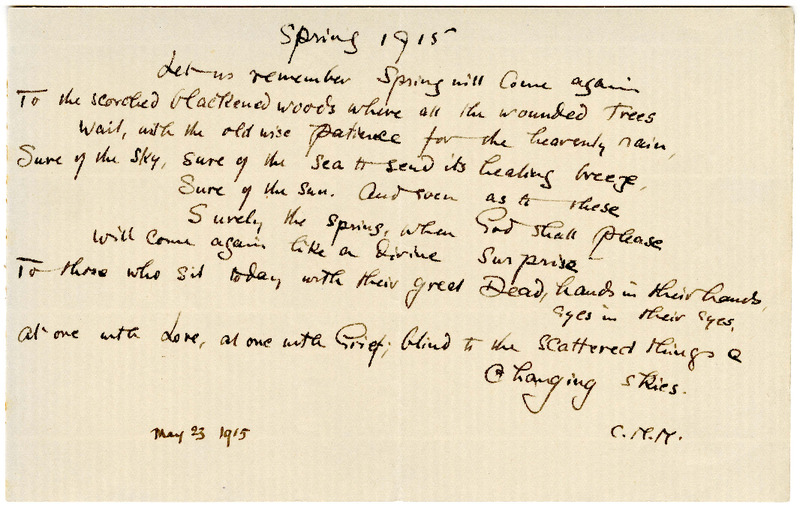 Spring 1915
Let us remember Spring will Come again
To the scorched blackened woods where all the wounded Trees
Wait, with the old wise Patience for the heavenly rain,
Sure of the Sky, Sure of the Sea to send its healing breeze,
Sure of the Sun. And even as to these
Surely the Spring, when God shall Please
Will come again like a divine Surprise
To those who sit today with their great Dead, hands in their hands,
Eyes in their Eyes,
At one with Love, at one with Grief; blind to the scattered things &
Changing skies.
May 23 1915
C.M.M.